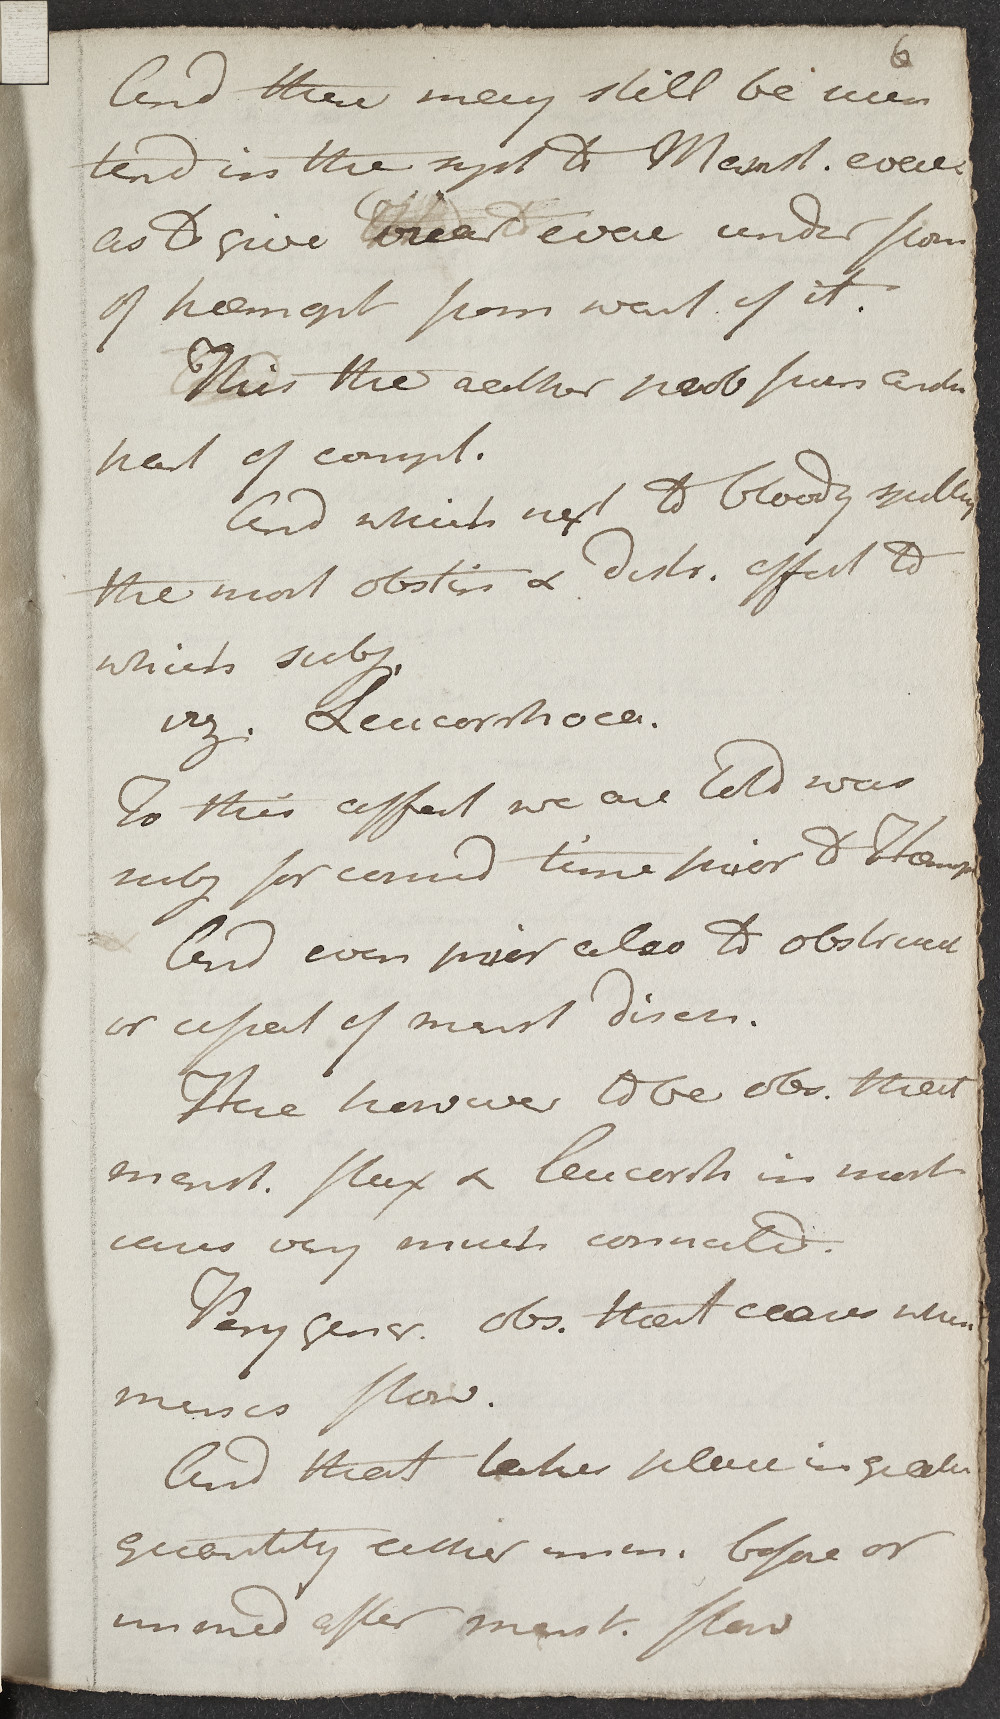 6
And there may still be such
tend in the syst to Menst. evac
as to give even under from
of hæmopt from want of it.
This the rather prob from another
part of compl.
And which next to bloody spitting
the most obstin & distr. affect to
which subj.
viz. Leucorrhoea.
To this affect we are told was
subj for consid time prior to Hæmopt
And even prior also to obstruct
or upect of menst discn.
Here however to be obs. that
menst. flux & leucorrh in most
cases very much connected.
Very gener. obs. that ceases when
menses flow.
And that takes place in greater
quantity either imm. before or
immed after menst. flow